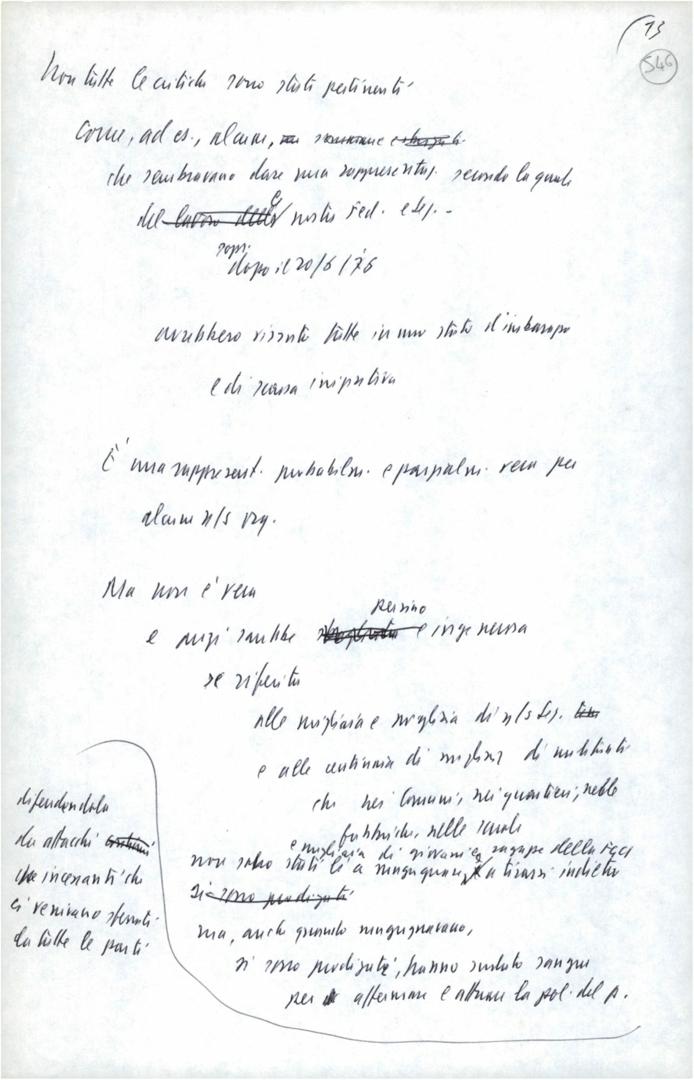 13
546
Non tutte le critiche sono state pertinenti
Come, ad es., alcune,
che sembravano dare una rappresentaz. secondo la quale
del lavoro delle nostre Fed. e Sez. -
sopr.
dopo il 20/6/76
avrebbero vissuto tutte in uno stato d'imbarazzo
e di scarsa iniziativa
È una rappresent. probabilm. e parzialm. vera per
alcune n/s org.
Ma non è vera
persino
e anzi sarebbe sbagliata e ingenerosa
se riferita
alle migliaia e migliaia di n/s Sez.
e alle centinaia di migliaia di militanti
che nei Comuni, nei quartieri, nelle
fabbriche, nelle scuole
e migliaia di giovani e ragazze della FGCI
non solo stati lì a mugugnare, a tirarsi indietro
si sono prodigati
ma, anche quando mugugnavano,
si sono prodigati, hanno sudato sangue
per affermare e attuare la pol. del p.
difendendola
da attacchi
incessanti che
ci venivano sferrati
da tutte le parti